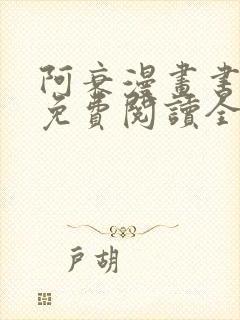 阿衰漫畫書
免費閱讀全
戶胡